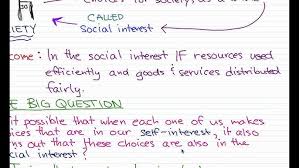 choices for society, as a whole
CALLED
Social interest
IETY
come : In the social interest IF resources used
efficiently and goods & services distributed
fairly.
E BIG QUESTION
it possible that when each one of us makes
ices that are in our self-interest, it also
ns out that these choices are also in the
cial interest?